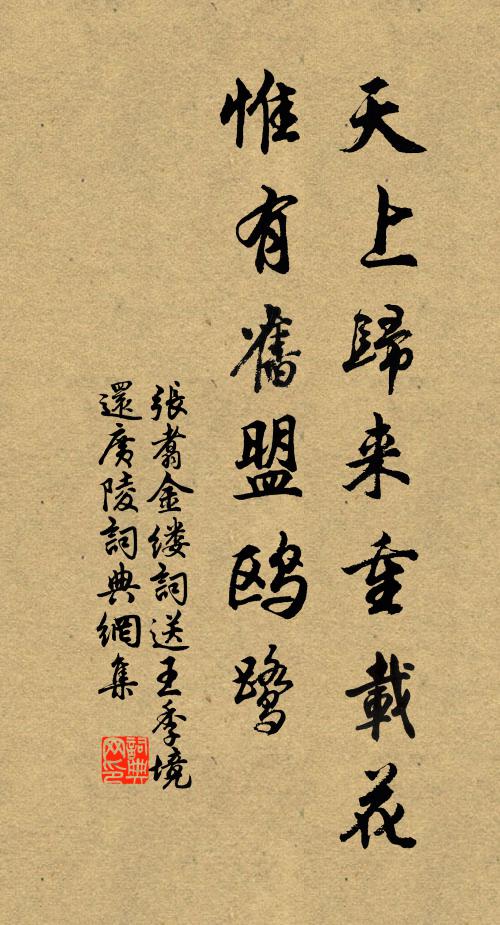 天上歸来重載花
惟有舊盟鸥鷺
張翥金缕詞送王季境
還廣陵詞典網集
詞典网印